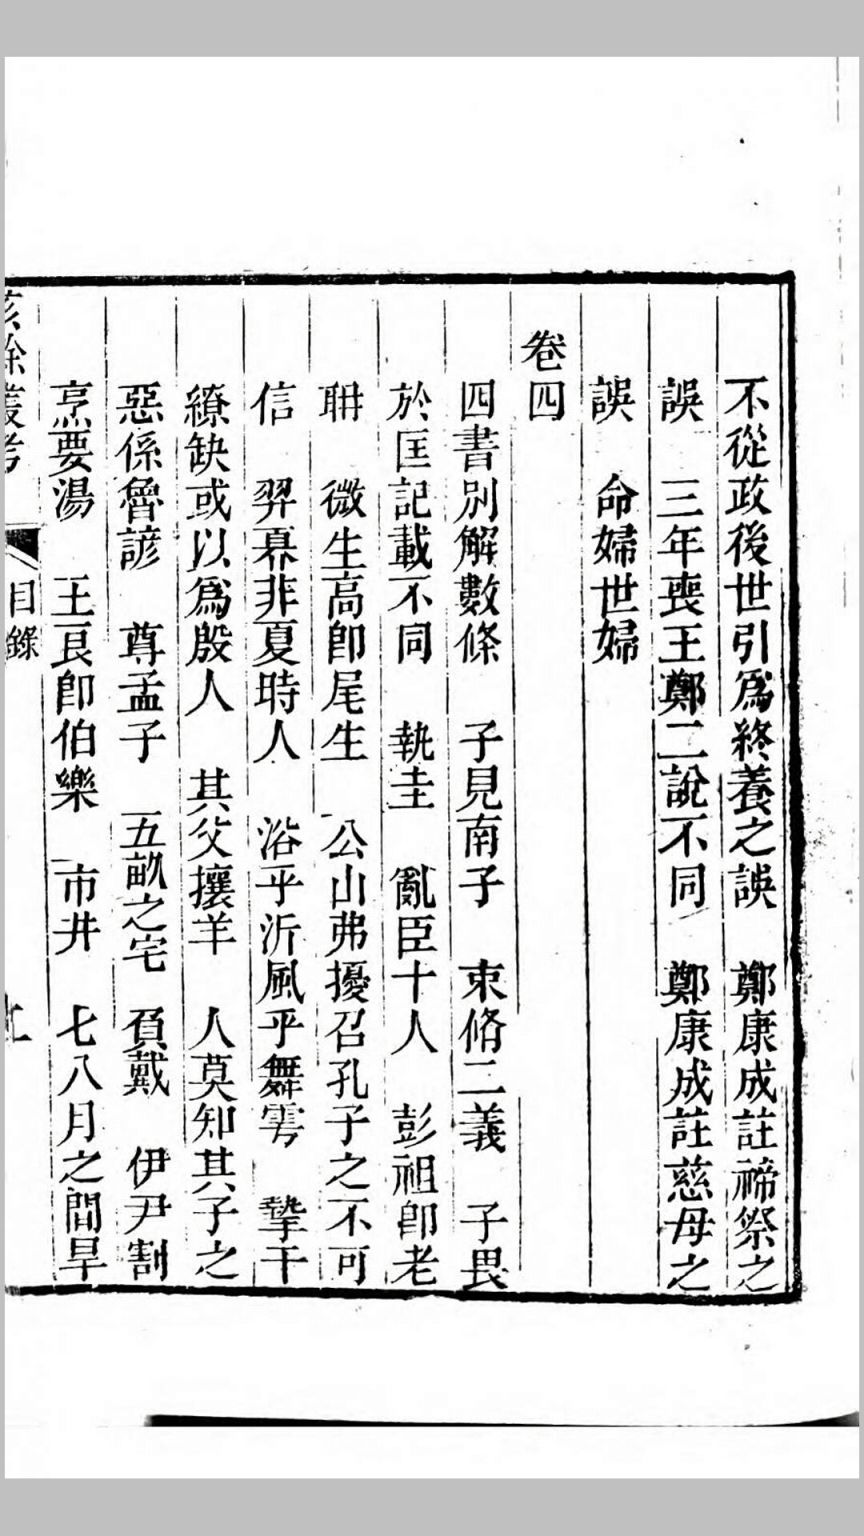 不從政後世引爲終養之誤　鄭康成註禘祭之
誤　三年喪王鄭二說不同　鄭康成註慈母之
誤　命婦世婦
卷四
四書別解數條　子見南子　束脩二義　子畏
於匡記載不同　執圭　亂臣十人　彭祖卽老
聃　微生高卽尾生　公山弗擾召孔子之不可
信　羿奡非夏時人　浴乎沂風乎舞雩　摯干
繚缺或以爲殷人　其父攘羊　人莫知其子之
惡係魯諺　尊孟子　五畝之宅　負戴　伊尹割
烹要湯　王良卽伯樂　市井　七八月之間旱
餘叢考
目錄